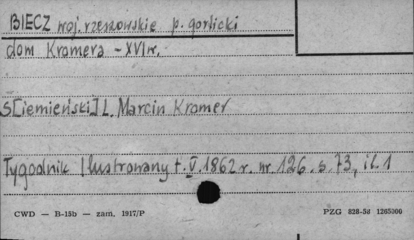 BIECZ woj. rzeszowskie p. gorlicki
dom Kromera - XVI w.
S[iemieński] L. Marcin Kromer
Tygodnik Ilustrowany t. V. 1862 r. nr 126. s. 73, il. 1
CWD — B-15b — zam. 1917/P
PZG 828-58 1265000